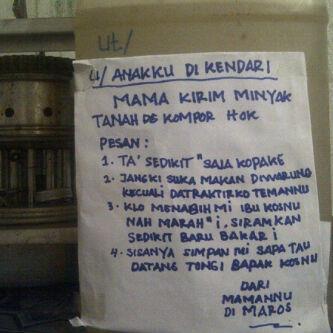 ut/
U/ ANAKKU DI KENDARI
MAMA KIRIM MINYAK
TANAH DG KOMPOR HOK
PESAN:
1. TA' SEDIKIT "SAJA KOPAKE
2. JANGKI SUKA MAKAN DIWARUNG
KECUALI DATRAKTIRKO TEMANNU
3. KLO MENAGIHMI IBU KOSNU
NAH MARAH"i, SIRAMKAN
SEDIKIT BARU BAKAR i
4. SISANYA SIMPAN MI SAPA TAU
DATANG TONGI BAPAK KOSNU
DARI
MAMANNU
DI MAROS